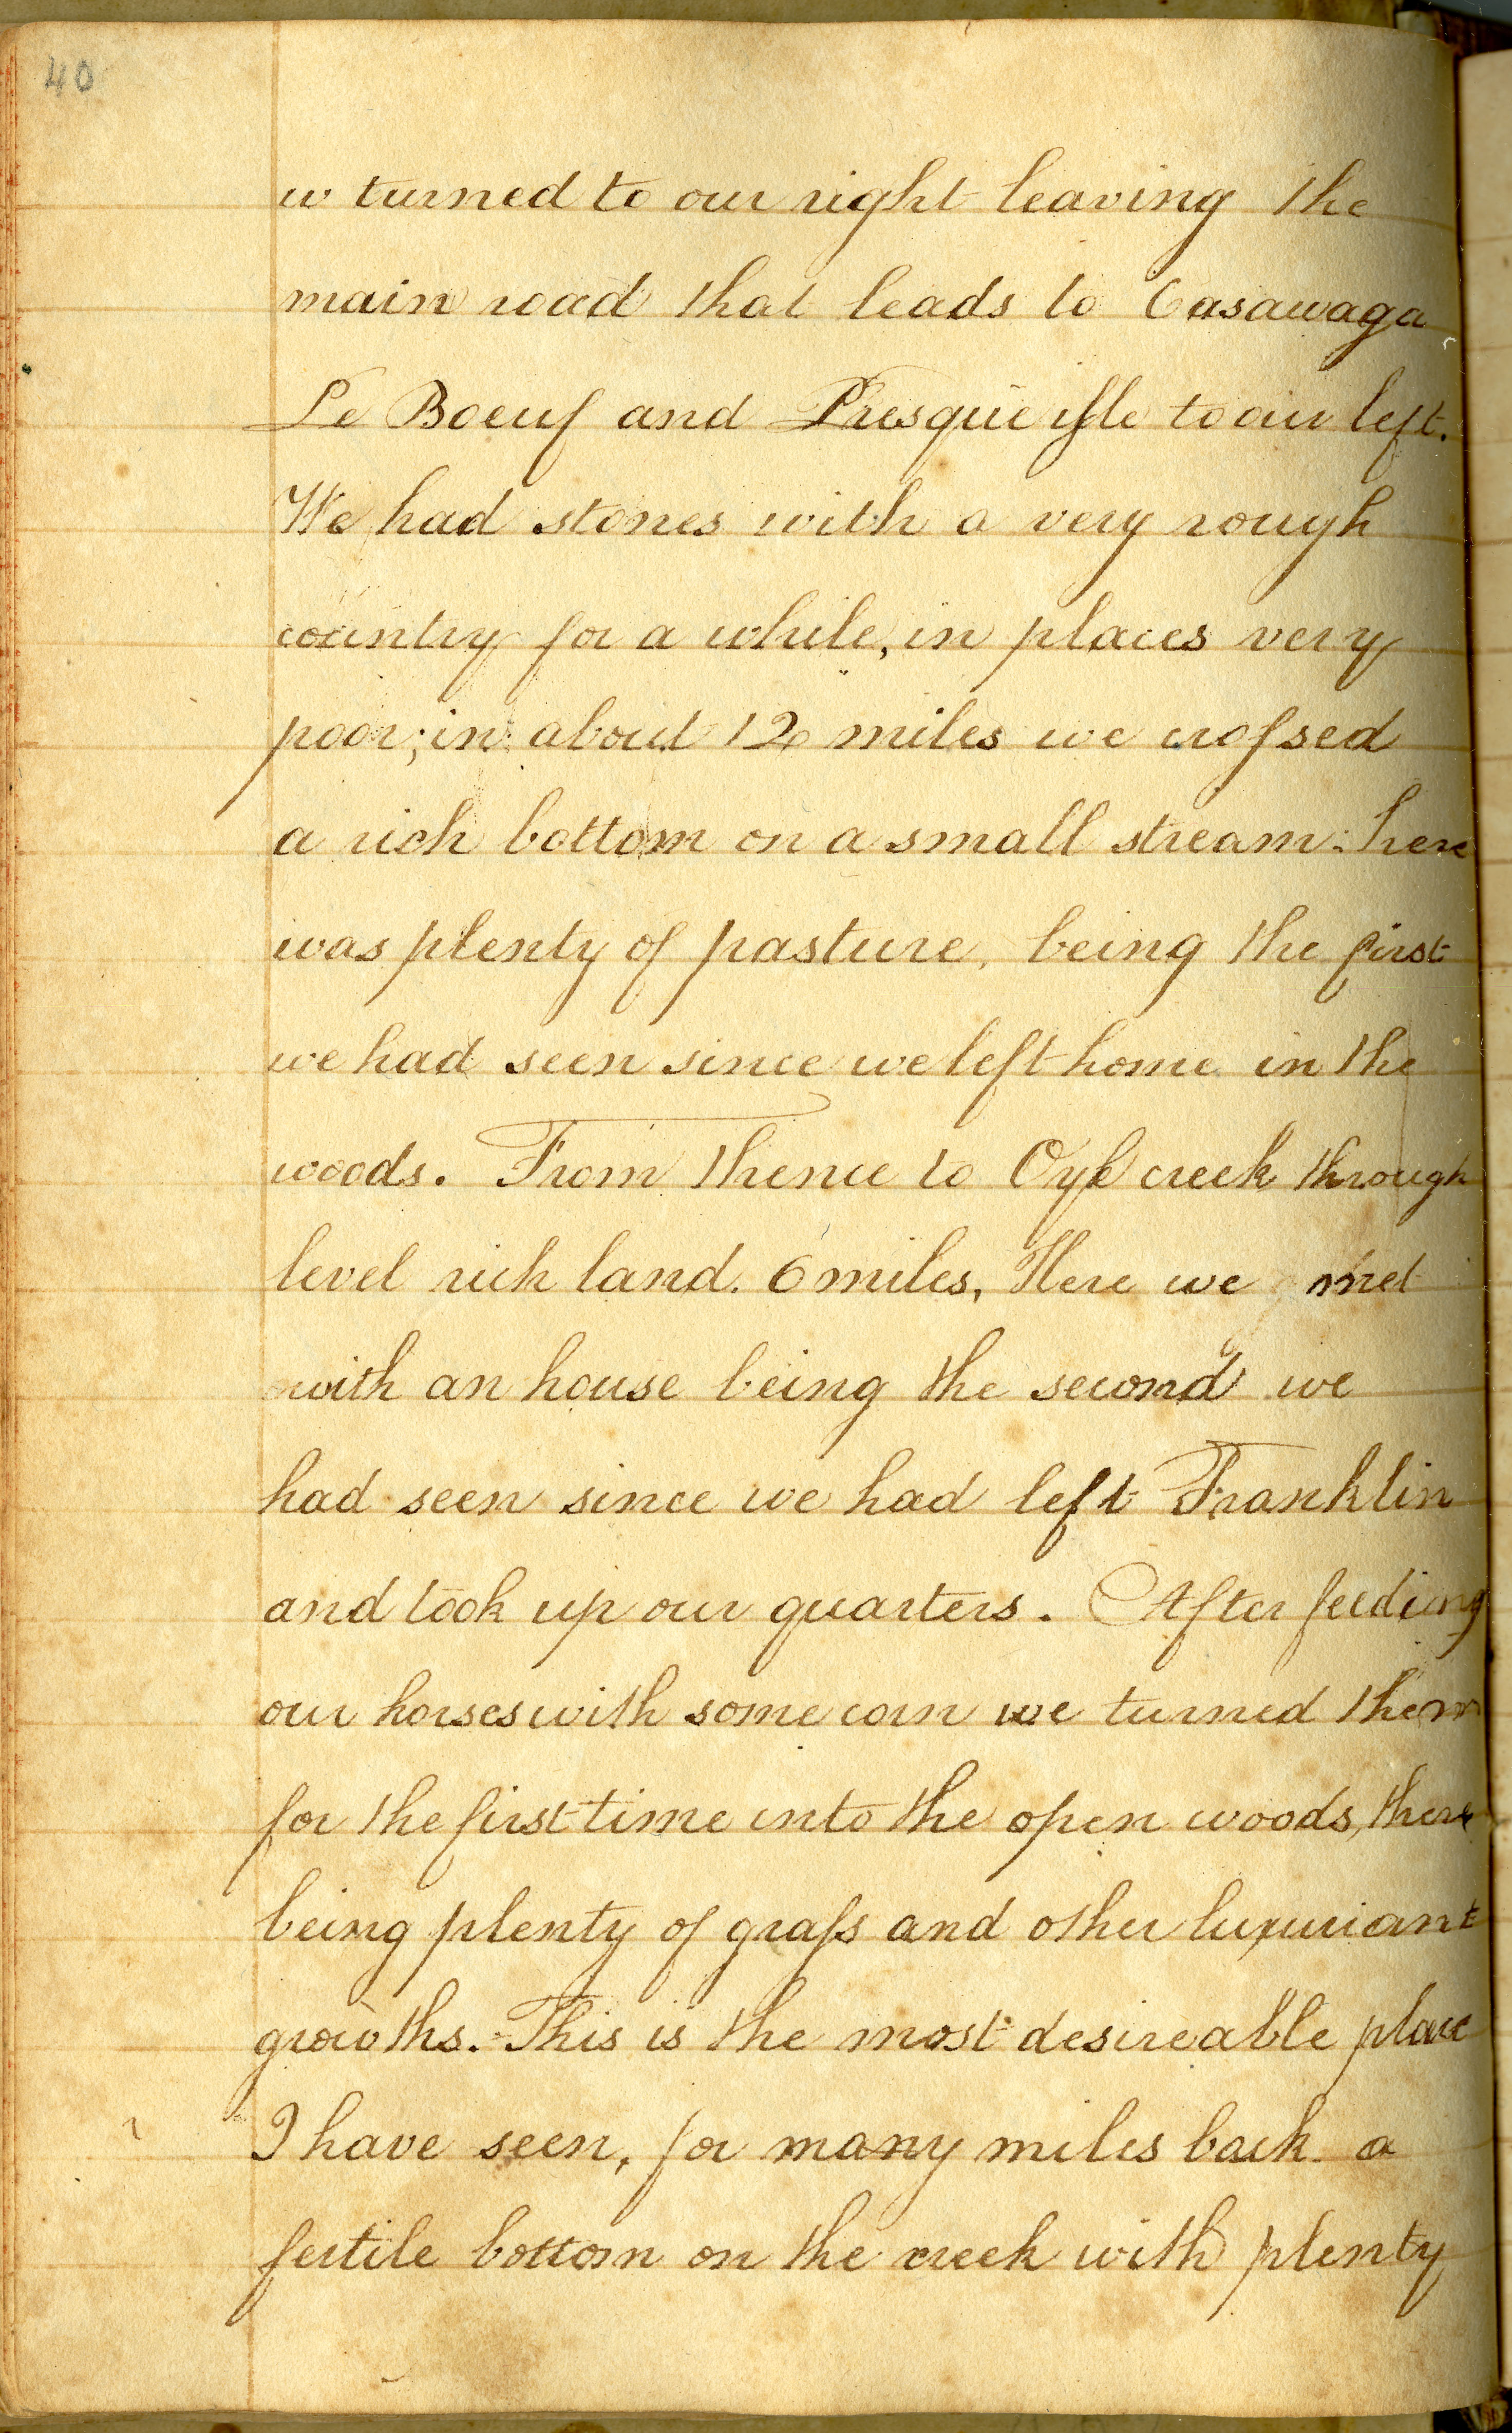 40
w turned to our right leaving the
main road that leads to Casawaga
Le Boeuf and Presque isle to our left.
We had stones with a very rough
country for a while, in places very
poor; in about 12 miles we crossed
a rich bottom on a small stream: here
was plenty of pasture, being the first
we had seen since we left home in the
woods. From thence to Oyl creek through
level rich land. 6 miles, Here we met
with an house being the second we
had seen since we had left Franklin
and took up our quarters. After feeding
our horses with some corn we turned them
for the first time into the open woods, there
being plenty of grass and other luxuriant
growths. This is the most desireable place
I have seen, for many miles back a
fertile bottom on the creek with plenty